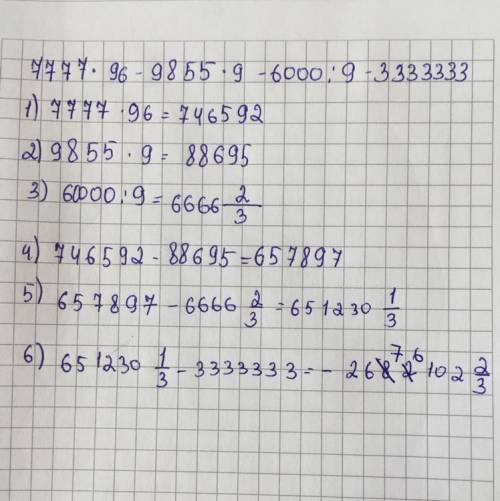 7777 · 96 - 9855 · 9 - 6000 : 9 - 3333333
1) 7777 · 96 = 746592
2) 9855 · 9 = 88695
3) 60000 : 9 = 6666 2/3
4) 746592 - 88695 = 657897
5) 657897 - 6666 2/3 = 651230 1/3
6) 651230 1/3 - 3333333 = - 2676102 2/3